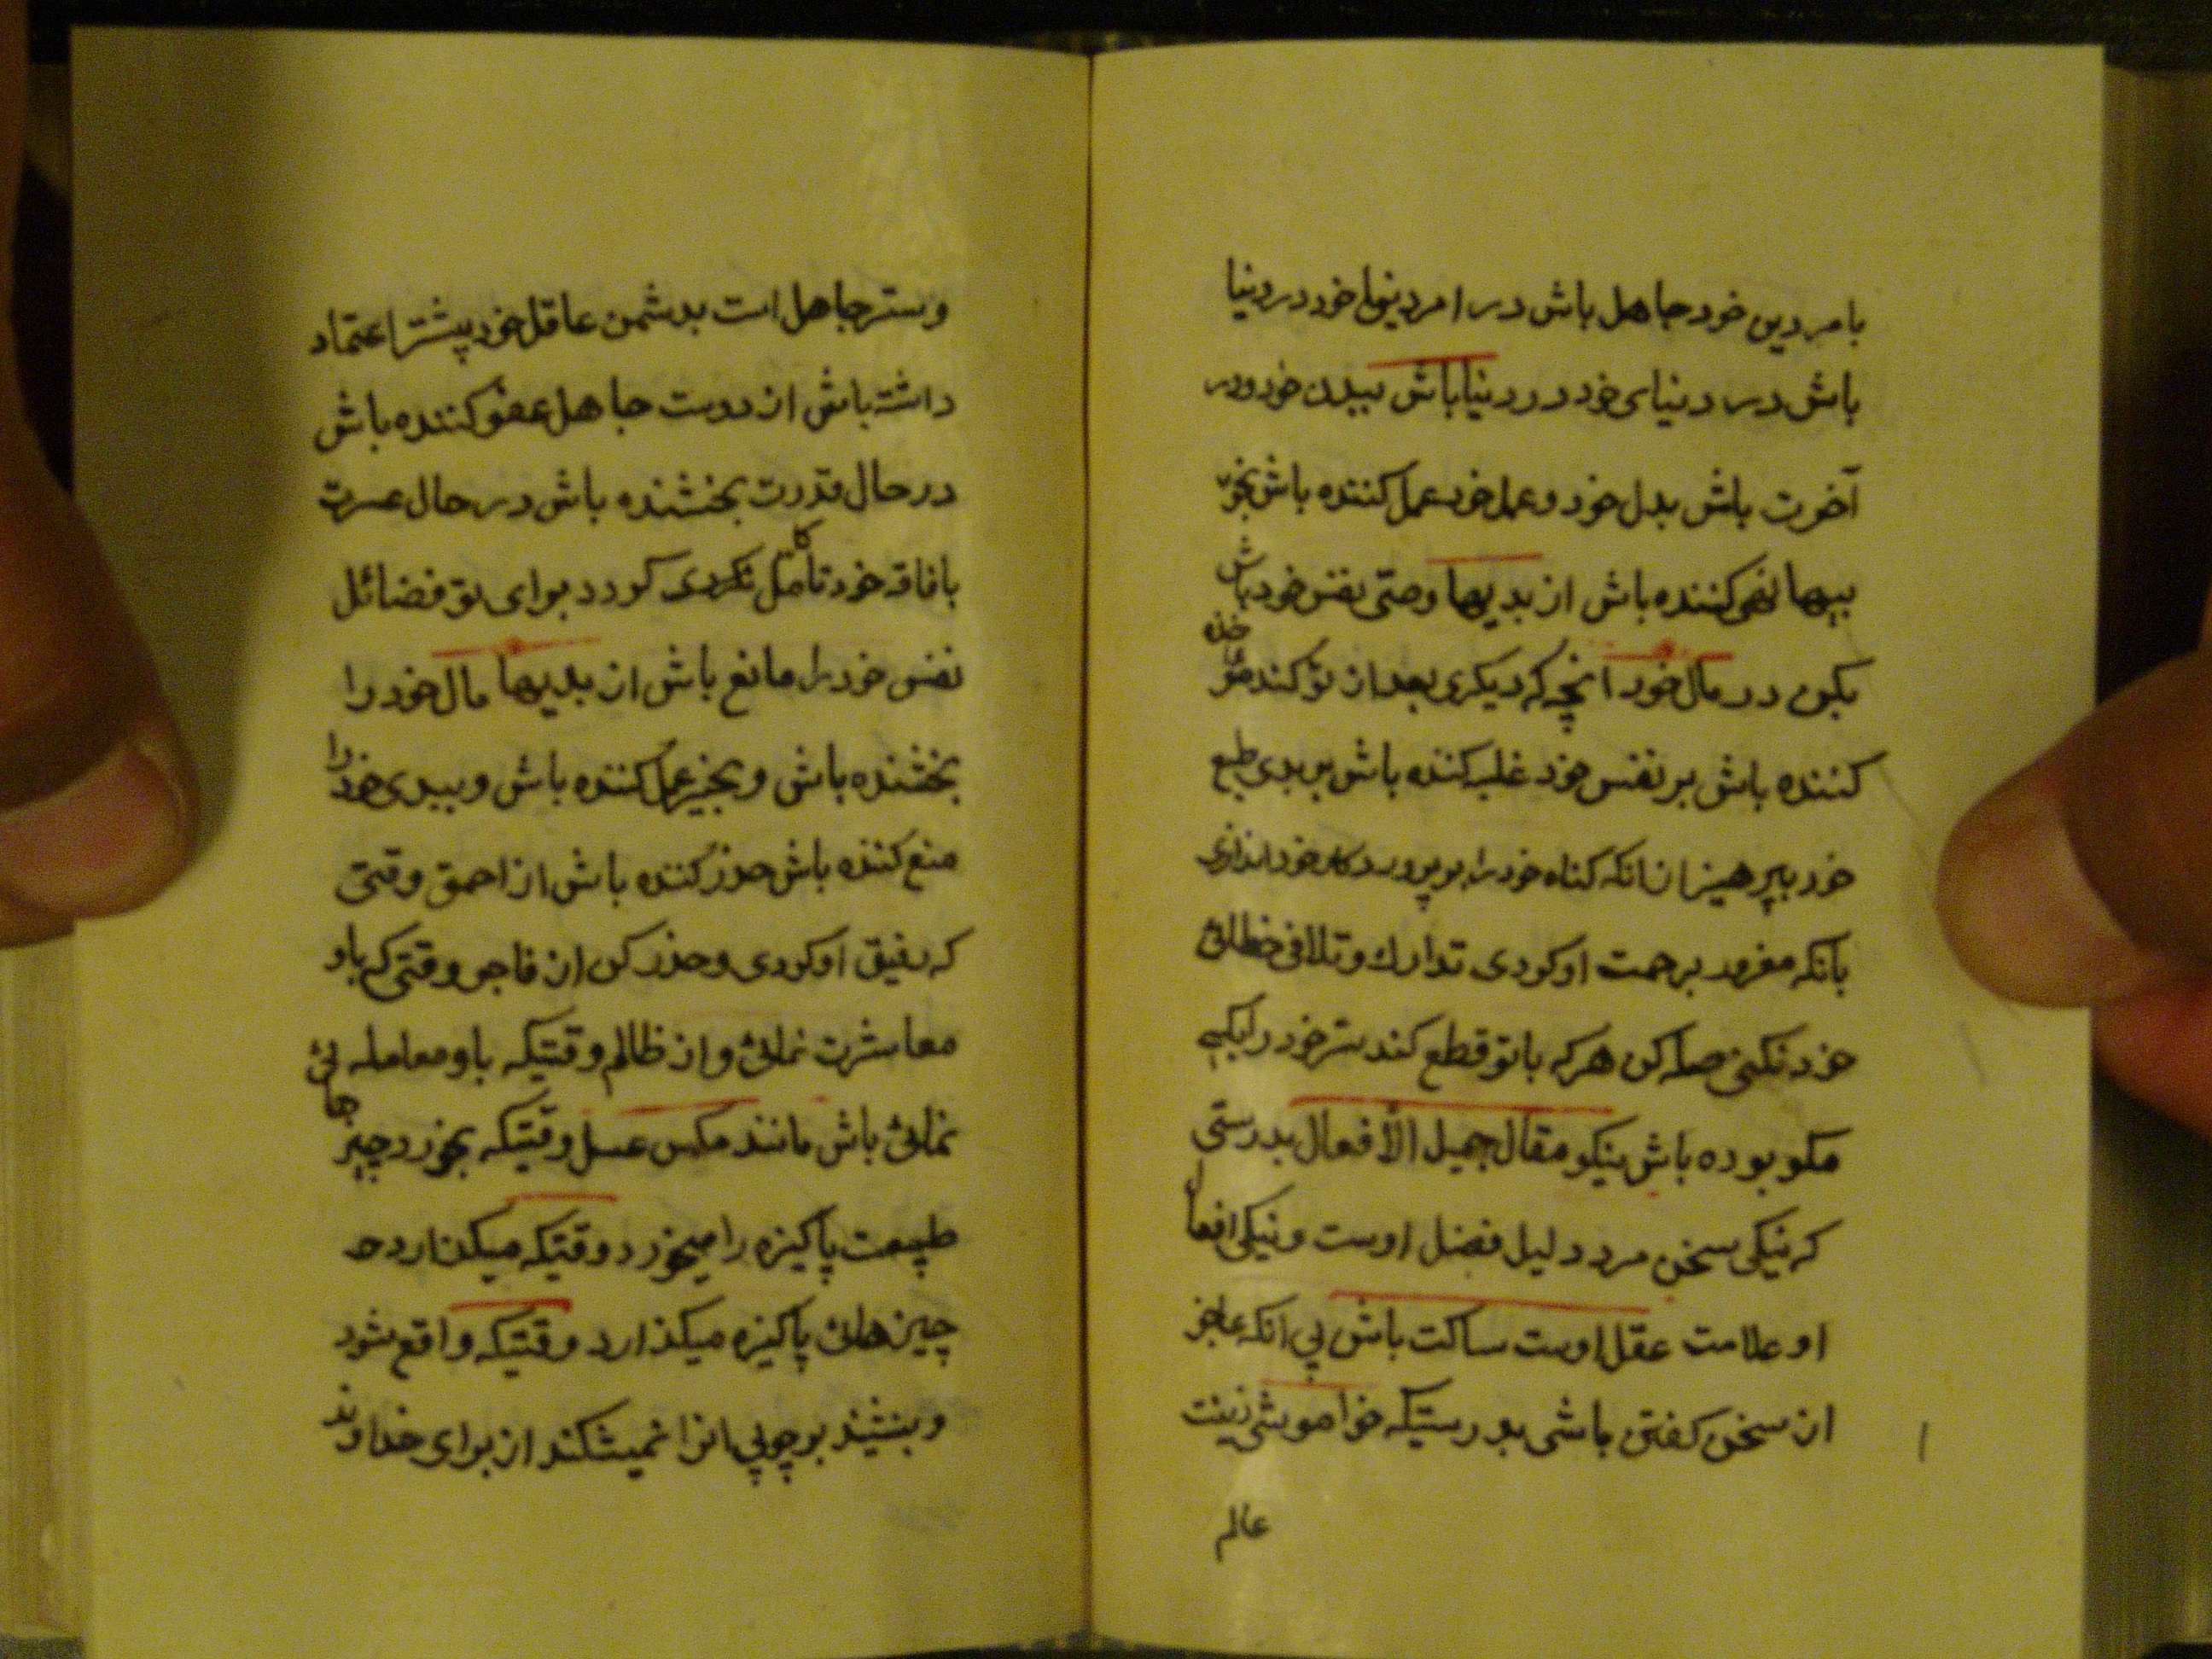 بامردین خود جاهل باش در امر دنیای خود در دنیا
باش در دنیای خود در دنیا باش ببدن خود و در
آخرت باش بدل خود و عمل خود عمل کننده باش بخو
بیها نهی کننده باش از بدیها وصّی نفس خود باش
بکن در مال خود انچه که دیکری بعد از تو کند مؤاخذه
کننده باش بر نفس خود غلبه کننده باش بر بدی طبع
خود بپرهیز از انکه کناه خود را بر پروردکار خود اندازی
بانکه مغرور برحمت او کردی تدارك و تلافی خطای
خود نکنی صله کن هر که با تو قطع کند ستر خود را بکسی
مکو بوده باش نیکو مقال جمیل الافعال بدرستی
که نیکی سخن مرد دلیل فضل اوست و نیکی افعال
او علامت عقل اوست ساکت باش بی انکه عاجز
از سخن کفتن باشی بدرستیکه خواموشی زینت
عالم
و ستر جاهل است بدشمن عاقل خود پیشتر اعتماد
داشته باش از دوست جاهل عفو کننده باش
در حال قدرت بخشنده باش در حال عسرت
با فاقه خود تا مکل نکردی کردد برای تو فضائل
نفس خود را مانع باش از بدیها مال خود را
بخشنده باش و بخیر عمل کننده باش و ببدی خود را
منع کننده باش حذر کننده باش از احمق وقتی
که رفیق او کردی و حذر کن از فاجر وقتی که باو
معاشرت نمائی و از ظالم وقتیکه باو معامله ئی
نمائی باش مانند مکس عسل وقتیکه بخورد چیزها
طیمت پاکیزه را میخورد وقتیکه میکذارد
چیزهائی پاکیزه میکذارد وقتیکه واقع شود
و بنشیند بر چوبی انرا نمیشکند از برای خداوند